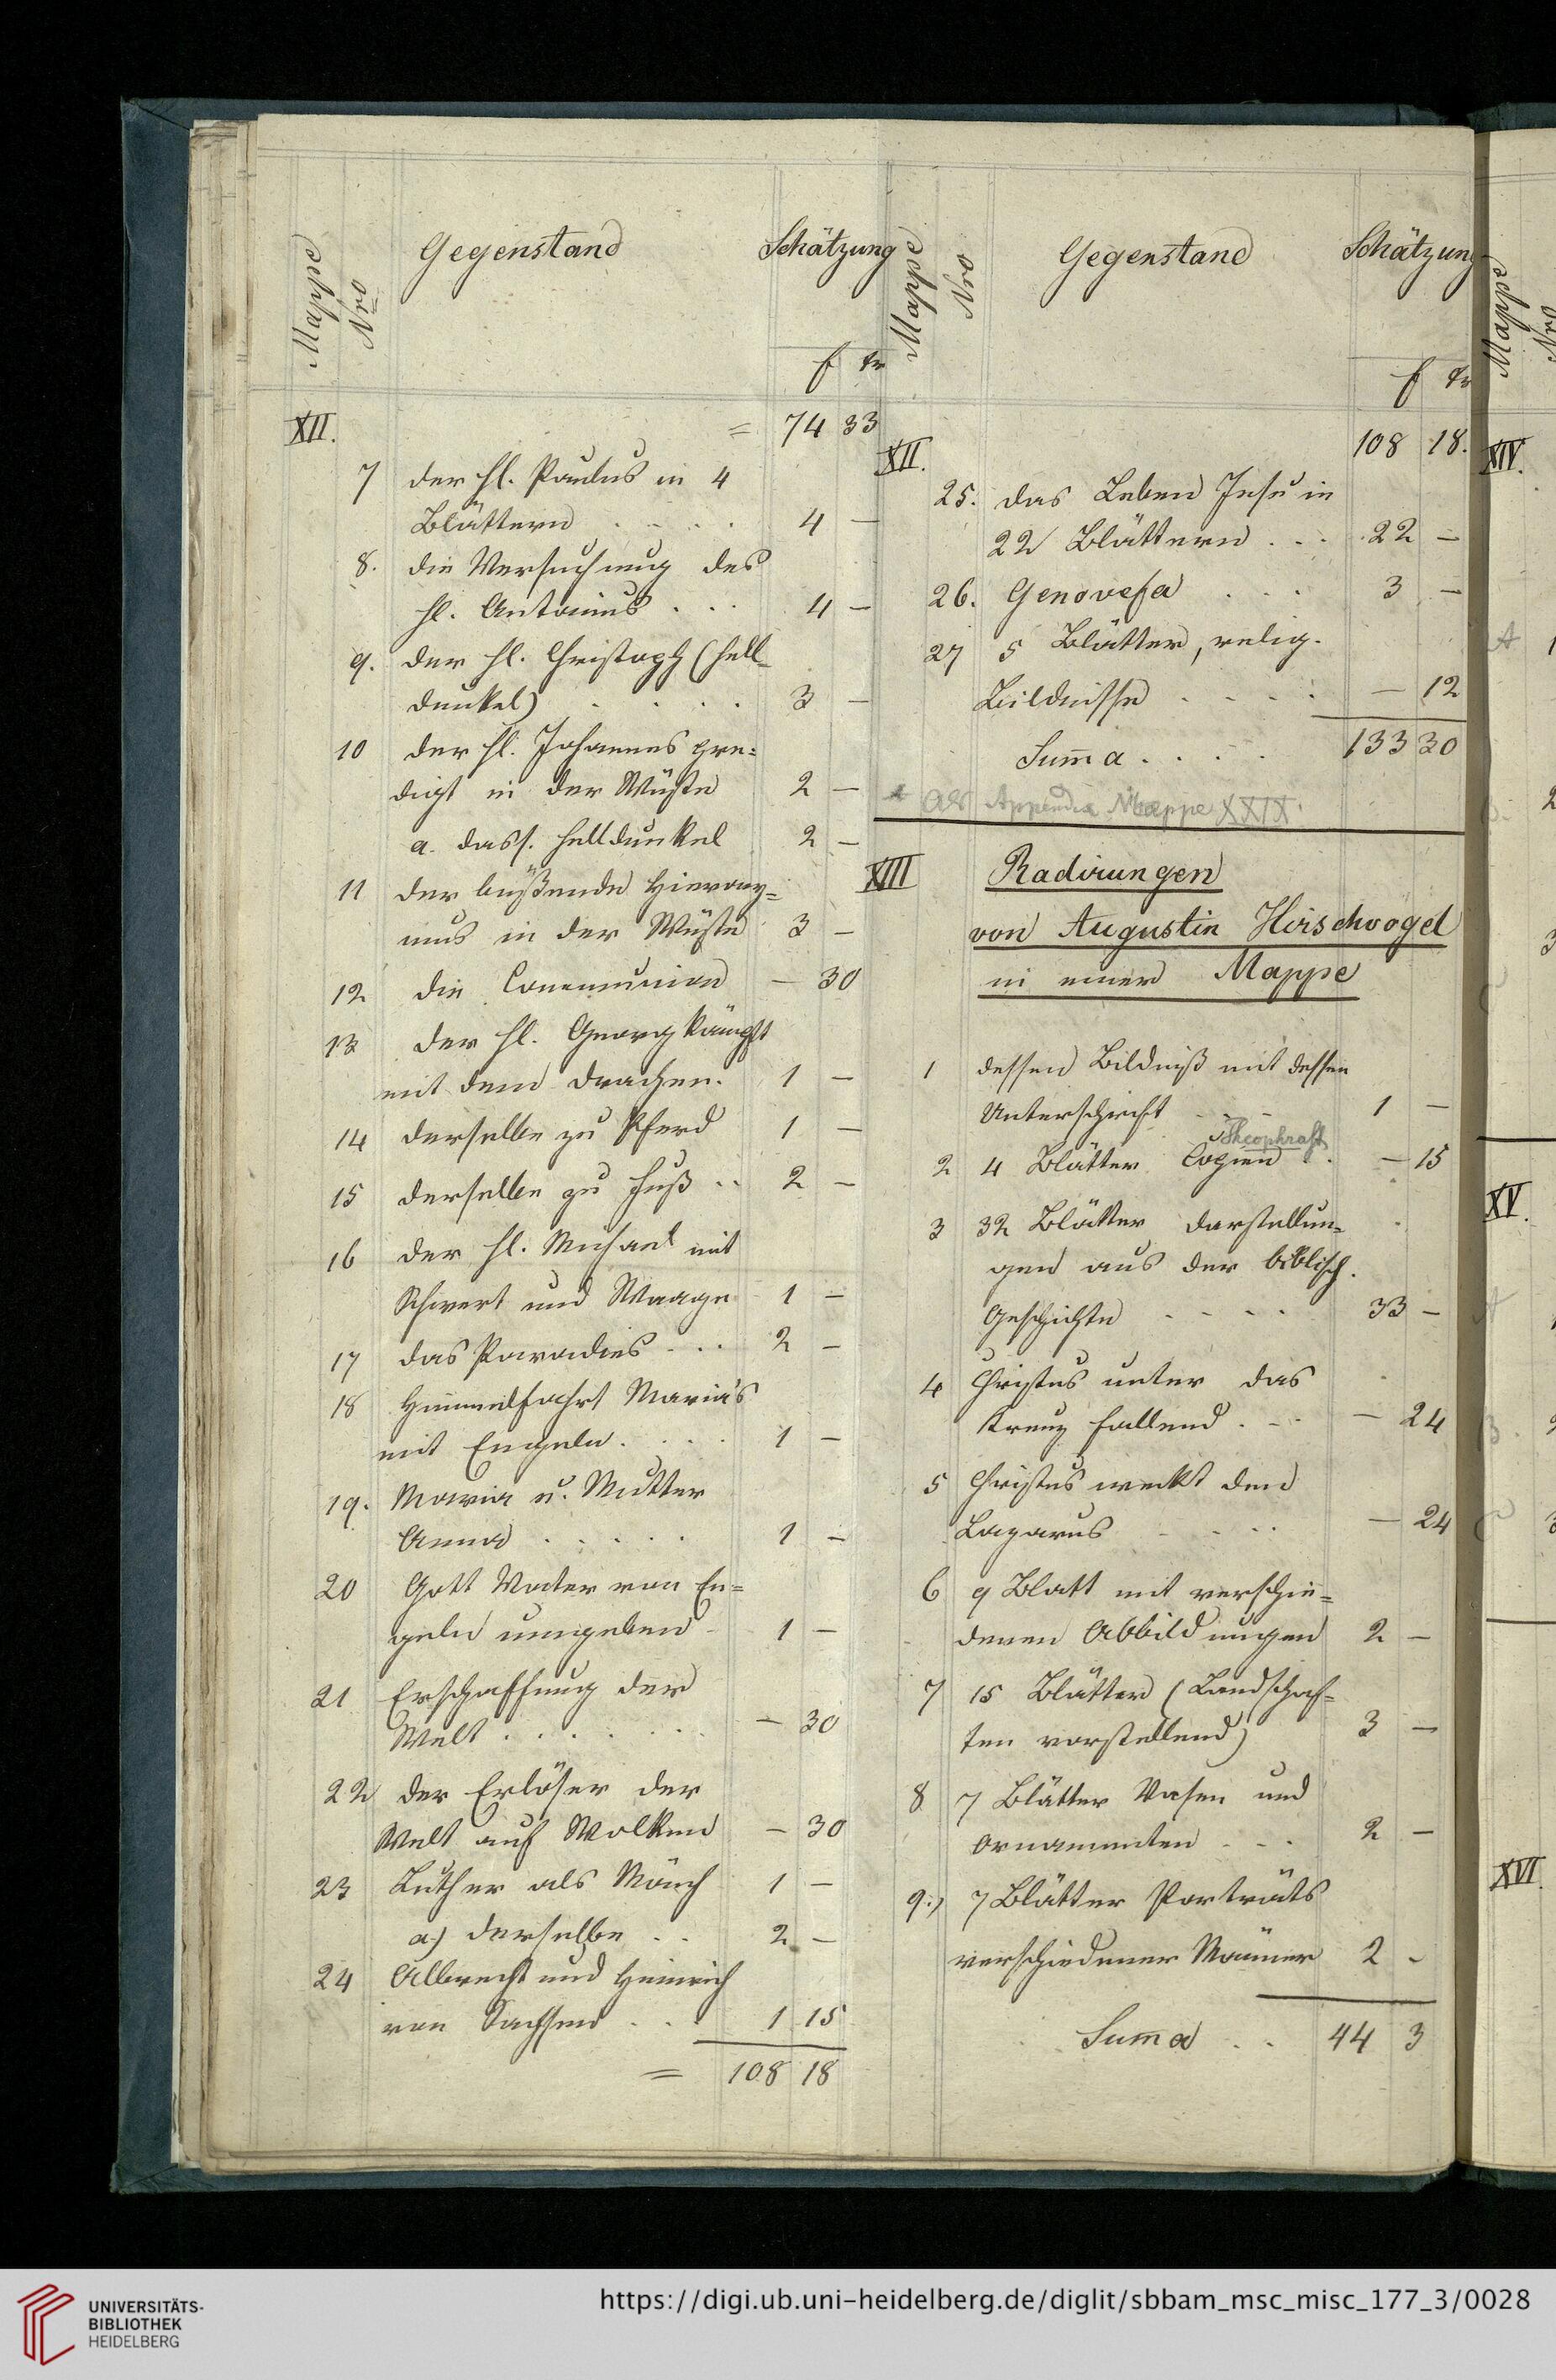 Mappe Nro Gegenstand Schätzung
f kr
XII. = 74 33
7 der hl. Paulus in 4
Blättern . . . . 4 —
8. die Versuchung des
hl. Antonius . . . 4 —
9. der hl. Christoph (hell-
dunkel) . . . . 3 —
10 der hl. Johannes pre-
digt in der Wüste 2 —
a. dass. helldunkel 2 —
11 der büßende Hierony-
mus in der Wüste 3 —
12 die Communion — 30
13 der hl. Georg kämpft
mit dem Drachen. 1 —
14 derselbe zu Pferd 1 —
15 derselbe zu Fuß . . 2 —
16 der hl. Michael mit
Schwert und Waage 1 —
17 das Paradies . . . 2 —
18 Himmelfahrt Maria's
mit Engeln . . . . 1 —
19. Maria u. Mutter
Anna . . . . . 1 —
20 Gott Vater von En-
geln umgeben 1 —
21 Erschaffung der
Welt . . . . . . — 30
22 der Erlöser der
Welt auf Wolken — 30
23 Luther als Mönch 1 —
a) derselbe . . 2 —
24 Albrecht und Heinrich
von Sachsen . . . 1 15
= 108 18
Mappe Nro Gegenstand Schätzung
f kr
XII. 108 18.
25. das Leben Jesu in
22 Blättern . . . 22 —
26. Genovefa . . . 3 —
27 5 Blätter, relig.
Bildnisse . . . . — 12
Summa . . . . 133 30
als Appendix Mappe XXIX.
XIII Radirungen
von Augustin Hirschvogel
in einer Mappe
1 dessen Bildniß mit dessen
Unterschrift . . . 1 —
Theophrast
2 4 Blätter Copien . . — 15
3 32 Blätter Darstellun-
gen aus der biblisch.
Geschichte . . . . 33 —
4 Christus unter das
Kreuz fallend . . . — 24
5 Christus weckt den
Lazarus . . . . — 24
6 9 Blatt mit verschie-
denen Abbildungen 2 —
7 15 Blätter (Landschaf-
ten vorstellend) 3 —
8 7 Blätter Vasen und
Ornamenten . . . 2 —
9.) 7 Blätter Porträts
verschiedener Männer 2 -
Summa . . 44 3
Mappe
Nro
XIV.
XV.
XVI.
UNIVERSITÄTS-
BIBLIOTHEK
HEIDELBERG
https://digi.ub.uni-heidelberg.de/diglit/sbbam_msc_misc_177_3/0028